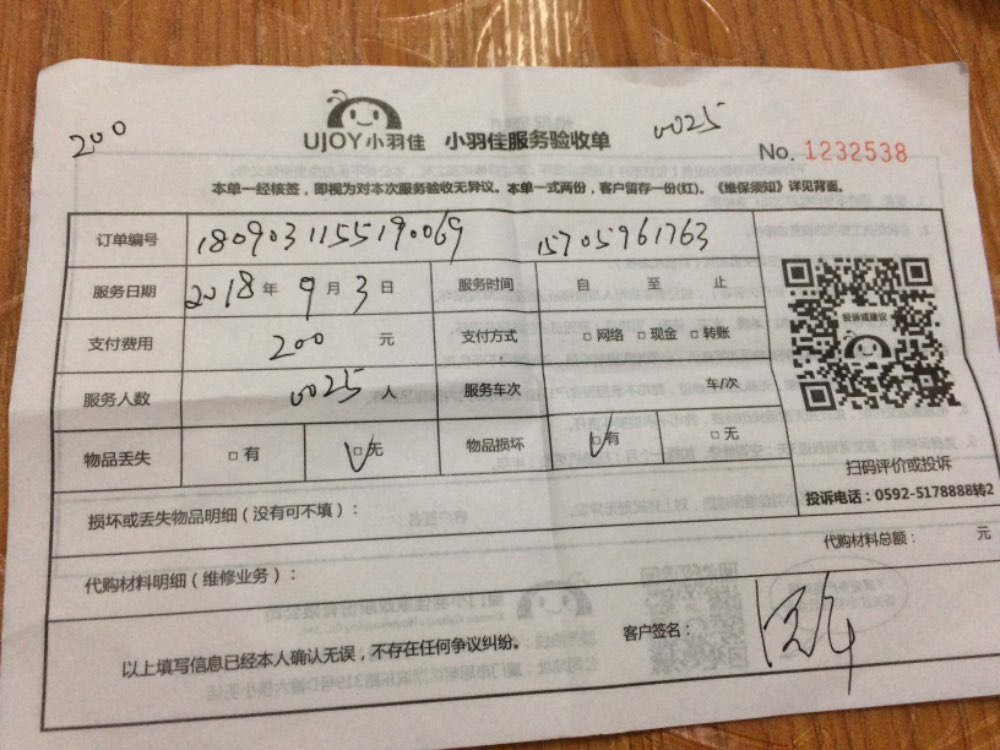 200
UJOY小羽佳 小羽佳服务验收单 0025
No. 1232538
本单一经核签，即视为对本次服务验收无异议。本单一式两份，客户留存一份(红)。《维保须知》详见背面。
订单编号 1809031155190069 15705961763
服务日期 2018年9月3日 服务时间 自 至 止
支付费用 200 元 支付方式 □网络 □现金 □转账
投诉或建议
服务人数 0025 人 服务车次 车/次
物品丢失 □有 □无 物品损坏 □有 □无
扫码评价或投诉
投诉电话：0592-5178888转2
损坏或丢失物品明细（没有可不填）：
代购材料总额： 元
代购材料明细（维修业务）：
客户签名：
以上填写信息已经本人确认无误，不存在任何争议纠纷。